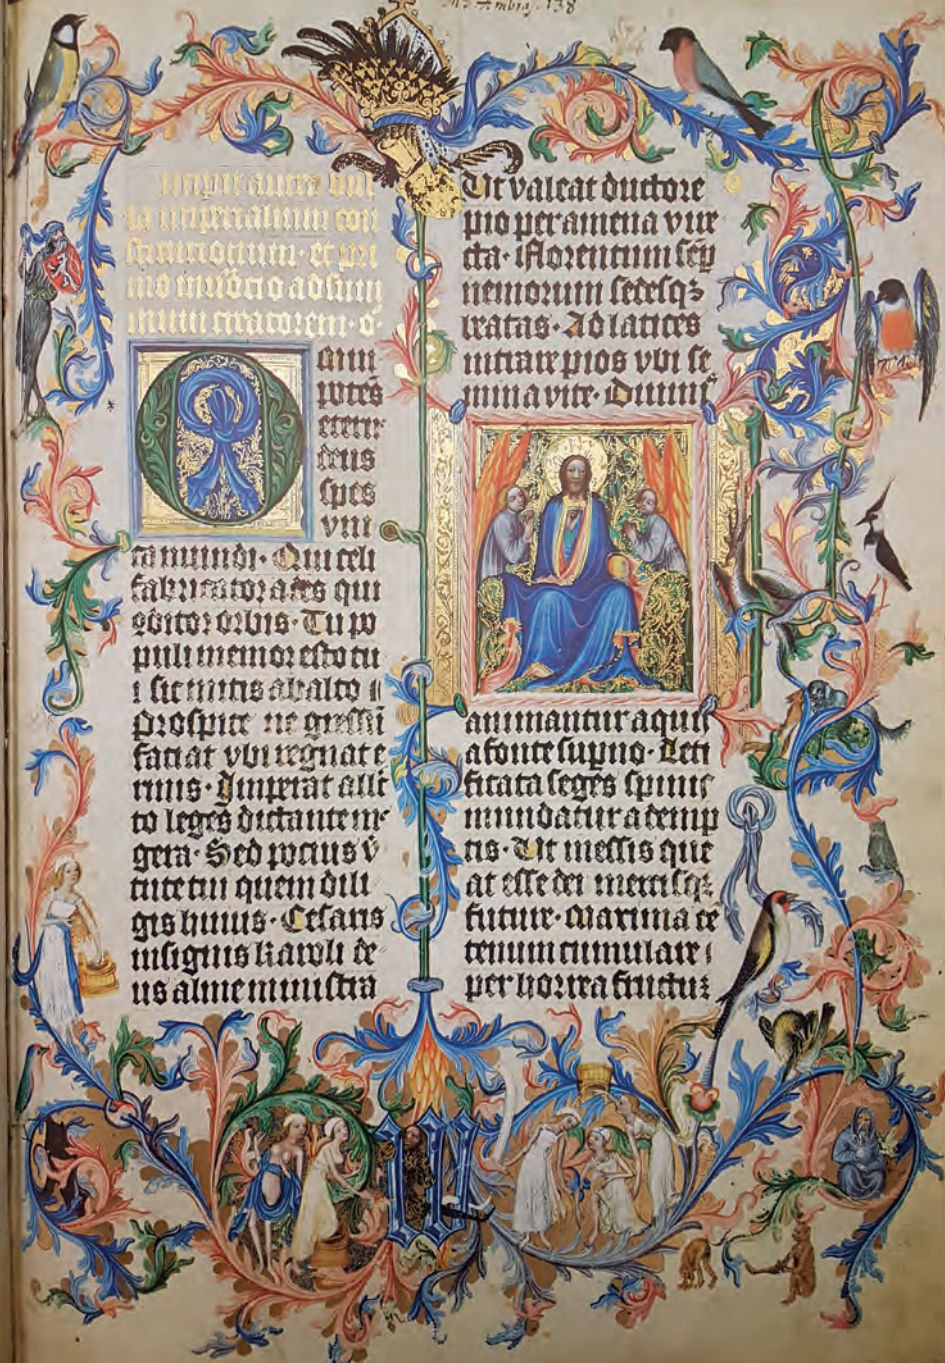 Ms Ambras. 138
Incipit aurea bul
la imperialium con
stitucionum · et pri
mo inuocacio ad sum
mum creatorem · O
mni
potēs
eterne
deus
spes
vni
ca mundi · Qui celi
fabricator ades qui
cōditor orbis · Tu po
puli memor esto tu
i sic mitis ab alto
Prospice ne gressū
faciat vbi regnat e
rinis · Imperat alle
cto leges dictante me
gera · Sed pocius v̄
tute tui quem dili
gis huius · Cesaris
insignis karoli de
us alme ministra
Ut valeat ductore
pio per amena vire
cta · Florentum semp̄
nemorum sedesqꝫ
beatas · Ad latices
intrare pios vbi se
mina vite · Diuinis
animantur aquis
a fonte sup̄no · Leti
ficata seges spinis
mundatur ademp
tis · Ut messis que
at esse dei mercisqꝫ
future · Maxima cē
tenum cumulare
per horrea fructus